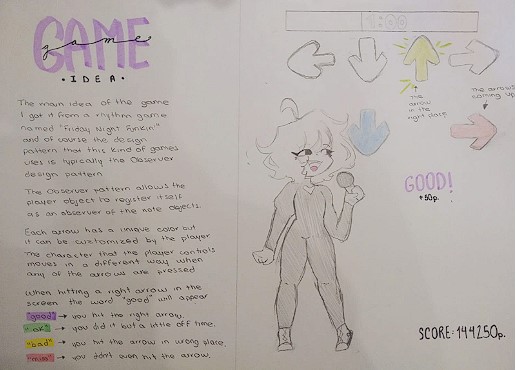 GAME
game
• IDEA •
The main idea of the game
I got it from a rhythm game
named "Friday Night Funkin"
and of course the design
pattern that this kind of games
uses is typically the Observer
design pattern
The Observer pattern allows the
player object to register itself
as an observer of the note objects.
Each arrow has a unique color but
it can be customized by the player
The character that the player controls
moves in a different way when
any of the arrows are pressed
When hitting a right arrow in the
screen the word "good" will appear
"good" → you hit the right arrow.
"ok" → you did it but a little off time.
"bad" → you hit the arrow in wrong place.
→ you didn't even hit the arrow.
1:00
The
arrow
in the
right place
The arrows
coming up
GOOD!
+50p.
SCORE: 144250p.